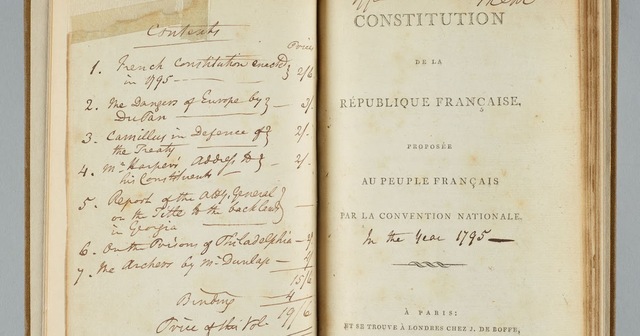 Contents
Price
1. French Constitution enacted
in 1795 - - 2/6
2. The Dangers of Europe by
DuPan - 3/
3. Camillus in Defence of
the Treaty 2/-
4. Mr Harper's Address to
his Constituents - 2/-
5. Report of the Atty. General
on the Title to the back lands
in Georgia
6. On the Prisons of Philadelphia -
7. The Archers by Mr Dunlap - 4/
15/6
Binding 4
Price of this Vol. 19/6
CONSTITUTION
DE LA
RÉPUBLIQUE FRANÇAISE,
PROPOSÉE
AU PEUPLE FRANÇAIS
PAR LA CONVENTION NATIONALE.
In the Year 1795 —
À PARIS:
ET SE TROUVE À LONDRES CHEZ J. DE BOFFE,